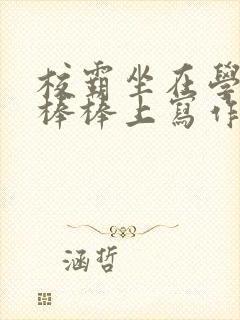 校霸坐在學
棒棒上寫作
涵哲